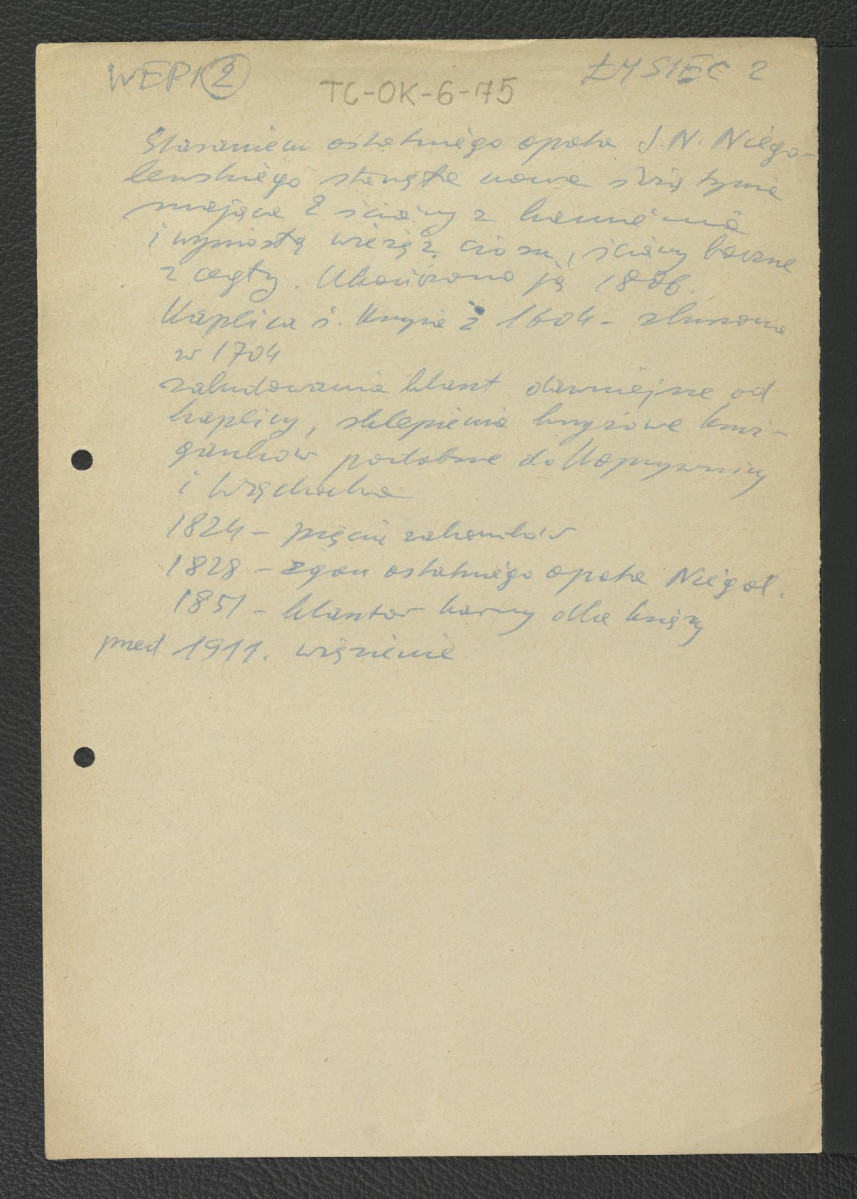 WEPI 2
TC-OK-6-75
ŁYSIEC 2
Staraniem ostatniego opata J. N. Niego-
lewskiego stanęła nowa świątynia
mająca 2 ściany z kamienia
i wyniosłą wieżą z ciosu, ściany boczne
z cegły. Ukończono ją 1806.
Kaplica ś. Krzyża z 1604 -
w 1704
zabudowania klaszt dawniejsze od
kaplicy, sklepienia krzyżowe kruż-
ganków podobne do Koprzywnicy
i Wąchocka
1824 - pięciu zakonników
1828 - zgon ostatniego opata Niegol.
1851 - klasztor karny dla księży
przed 1911. więzienie